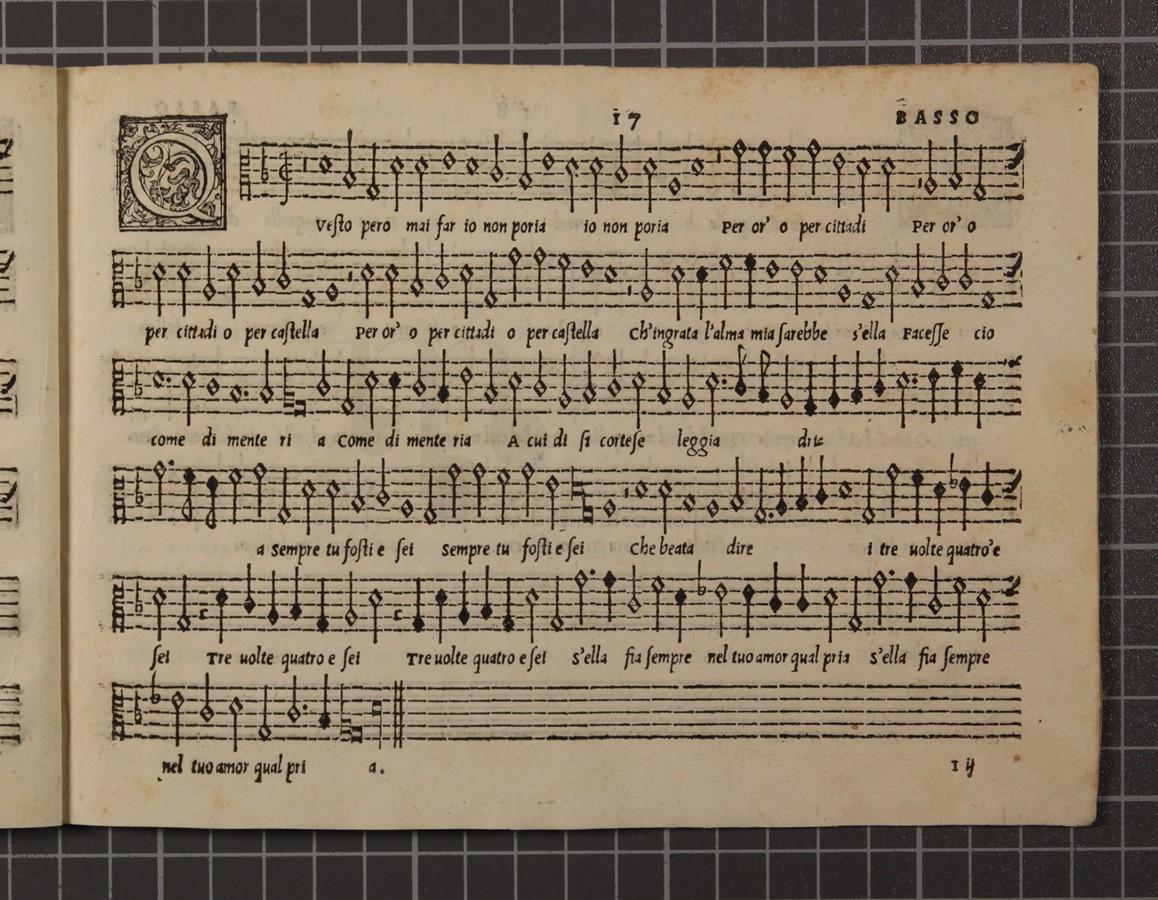 17 BASSO
Q Vesto pero mai far io non poria io non poria Per or' o per cittadi Per or' o
per cittadi o per castella Per or' o per cittadi o per castella Ch'ingrata l'alma mia sarebbe s'ella Facesse cio
come di mente ri a Come di mente ria A cui di si cortese leggia dri
a Sempre tu fosti e sei Sempre tu fosti e sei Che beata dire i tre uolte quatro'e
sei Tre uolte quatro e sei Tre uolte quatro e sei S'ella fia sempre nel tuo amor qual pria S'ella fia sempre
nel tuo amor qual pri a.
I ij